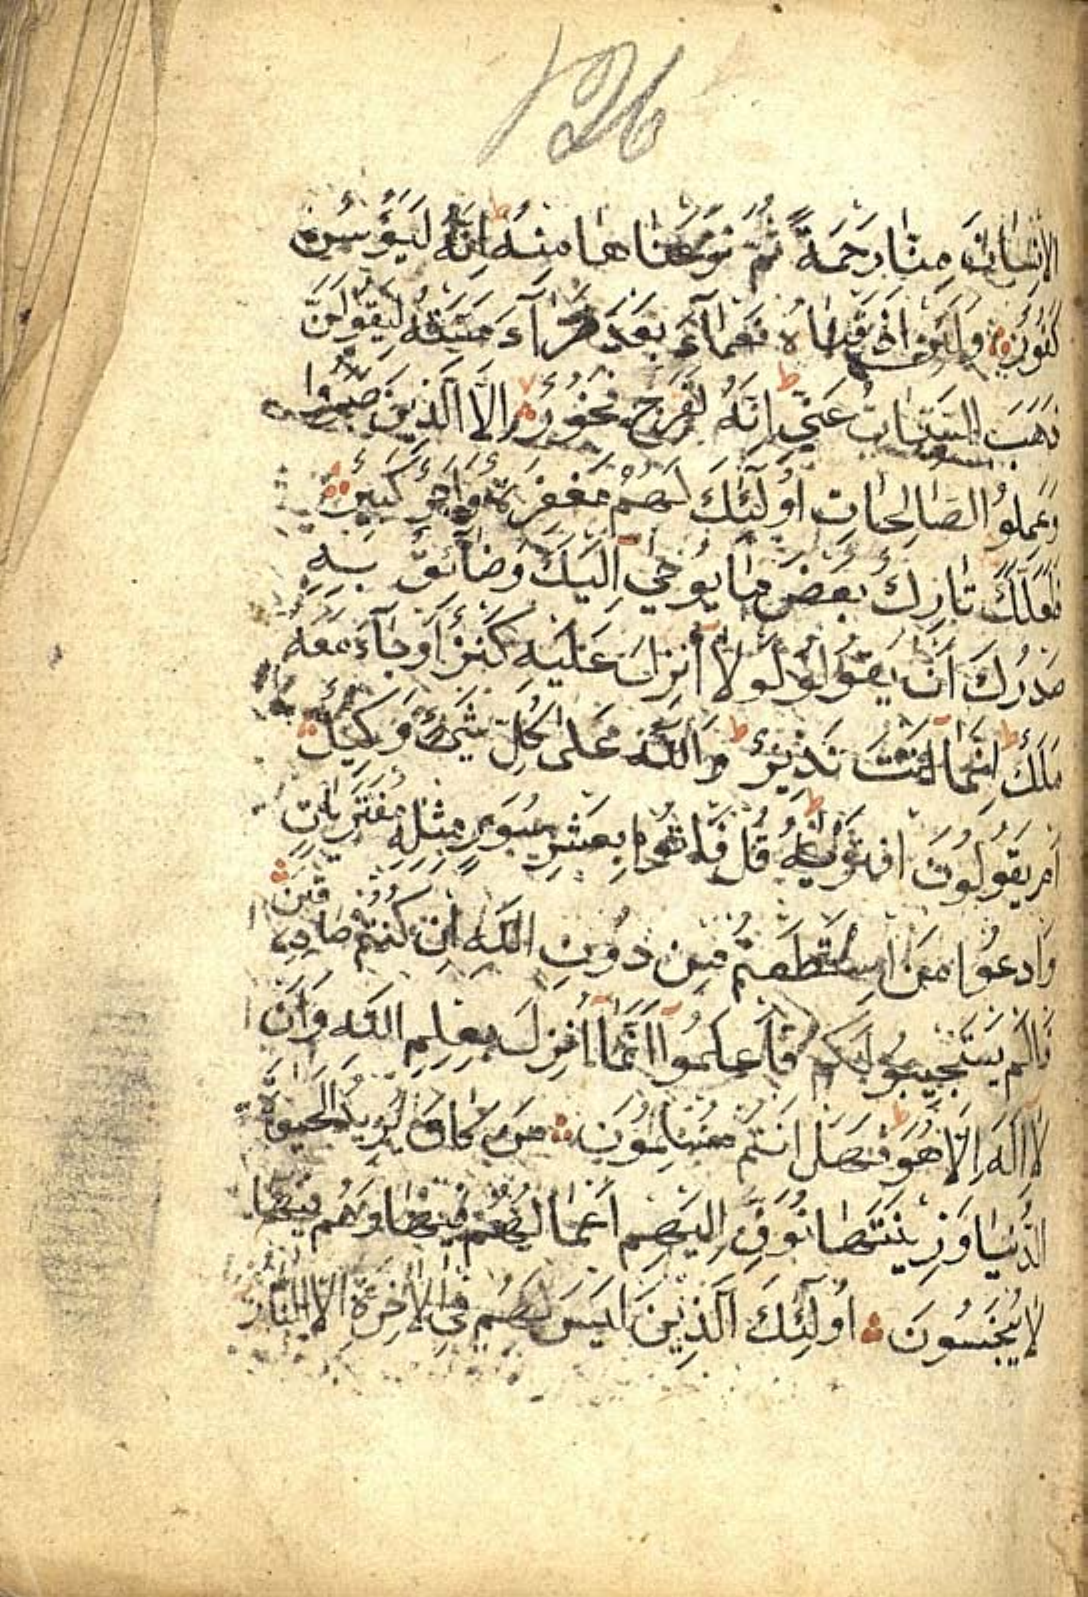 126
الاِنْسَانَ مِنَّا رَحْمَةً ثُمَّ نَزَعْنَاهَا مِنْهُ ط اِنَّهُ لَيَؤُسٌ
كَفُورٌ وَلَئِنْ اَذَقْنَاهُ نَعْمَآءَ بَعْدَ ضَرَّآءَ مَسَّتْهُ لَيَقُولَنَّ
ذَهَبَ السَّيِّئَاتُ عَنِّي ط اِنَّهُ لَفَرِحٌ فَخُورٌ اِلَّا الَّذِينَ صَبَرُوا
وَعَمِلُوا الصَّالِحَاتِ اُولَٓئِكَ لَهُمْ مَغْفِرَةٌ وَاَجْرٌ كَبِيرٌ
فَلَعَلَّكَ تَارِكٌ بَعْضَ مَا يُوحَىٓ اِلَيْكَ وَضَآئِقٌ بِهِ
صَدْرُكَ اَنْ يَقُولُوا لَوْلَآ اُنْزِلَ عَلَيْهِ كَنْزٌ اَوْ جَآءَ مَعَهُ
مَلَكٌ ط اِنَّمَآ اَنْتَ نَذِيرٌ ط وَاللّٰهُ عَلٰى كُلِّ شَىْءٍ وَكِيلٌ
اَمْ يَقُولُونَ افْتَرٰيهُ ط قُلْ فَاْتُوا بِعَشْرِ سُوَرٍ مِثْلِهِ مُفْتَرَيَاتٍ
وَادْعُوا مَنِ اسْتَطَعْتُمْ مِنْ دُونِ اللّٰهِ اِنْ كُنْتُمْ صَادِقِينَ
فَاِلَّمْ يَسْتَجِيبُوا لَكُمْ فَاعْلَمُوٓا اَنَّمَآ اُنْزِلَ بِعِلْمِ اللّٰهِ وَاَنْ
لَآ اِلٰهَ اِلَّا هُوَ ط فَهَلْ اَنْتُمْ مُسْلِمُونَ مَنْ كَانَ يُرِيدُ الْحَيٰوةَ
الدُّنْيَا وَزِينَتَهَا نُوَفِّ اِلَيْهِمْ اَعْمَالَهُمْ فِيهَا وَهُمْ فِيهَا
لَا يُبْخَسُونَ اُولَٓئِكَ الَّذِينَ لَيْسَ لَهُمْ فِى الْاٰخِرَةِ اِلَّا النَّارُ